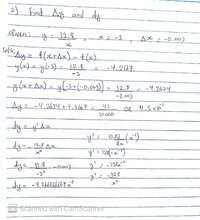 2) Find Δy and dy
Given: y = 12.8/x, x = -3 Δx = -0.003
Soln: Δy = f(x+Δx) - f(x)
y(x) = y(-3) = 12.8/-3 = -4.2667
y(x+Δx) = y[-3+(-0.003)] = 12.8/-3.003 = -4.2624
Δy = -4.2624 + 4.2667 = 43/10000 OR 4.3x10⁻³
dy = y'Δx
y' = 12.8 d/dx (x⁻¹)
dy = -12.8/x² Δx
y' = 12.8(-x⁻²)
dy = -12.8/-3² · -0.003
y' = -12.8x⁻²
y' = -12.8/x²
Scanned with CamScanner